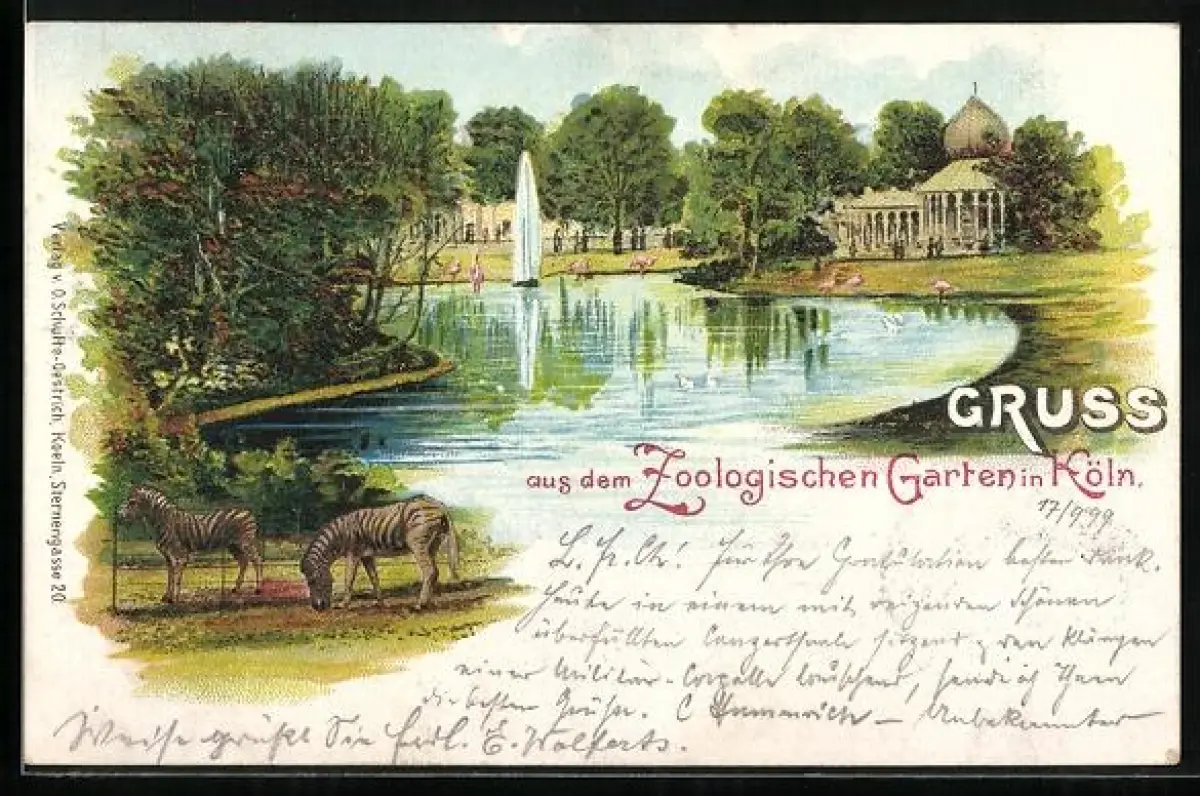 GRUSS
aus dem Zoologischen Garten in Köln.
17/9 99
L. Fr. Für Ihre Gratulation besten Dank.
Heute in einem mit reizenden Schönen
überfüllten Conzertsaale sitzend den Klängen
einer Militär-Capelle lauschend, sende ich Ihnen
die besten Grüße. C – Unbekannter
Weise grüßt Sie E. Wolferts.
Verlag v. O. Schulte-Oestrich, Koeln, Sternengasse 20.